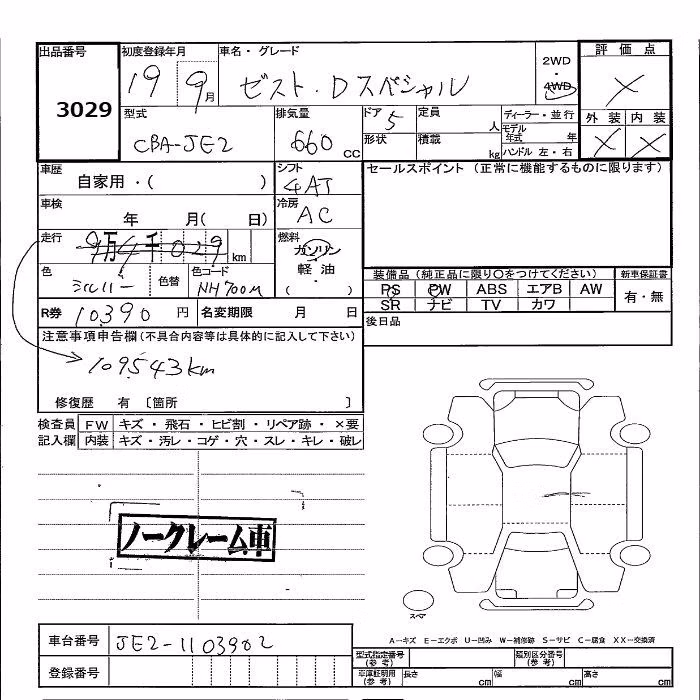 出品番号 初度登録年月 車名・グレード 2WD・4WD 評価点
3029 19 9月 ゼスト・Dスペシャル X
型式 排気量 ドア 定員 ディーラー・並行 外装 内装
CBA-JE2 660 cc 5 人 モデル年式 年 X X
形状 積載 kg ハンドル 左・右
車歴 シフト セールスポイント (正常に機能するものに限ります)
自家用・( ) 4AT
車検 冷房
年 月( 日) AC
走行 燃料
9万4千029 km ガソリン
軽油
・
( )
色 色替 色コード 装備品(純正品に限り○をつけてください) 新車保証書
シルバー NH700M PS PW ABS エアB AW 有・無
SR ナビ TV カワ
R券 10390 円 名変期限 月 日 後日品
注意事項申告欄(不具合内容等は具体的に記入して下さい)
109543km
修復歴 有 〔箇所 〕
検査員 FW キズ・飛石・ヒビ割・リペア跡・×要
記入欄 内装 キズ・汚レ・コゲ・穴・スレ・キレ・破レ
ノークレーム車
スペア
A-キズ E-エクボ U-凹み W-補修跡 S-サビ C-腐食 XX-交換済
車台番号 JE2-1103902
登録番号
型式指定番号(参考) 類別区分番号(参考)
車庫証明用(参考) 長さ cm 幅 cm 高さ cm